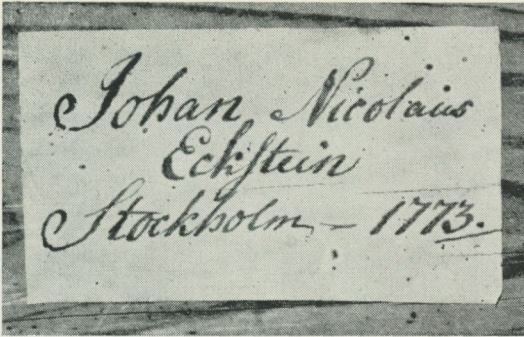 Johan Nicolaus
Eckstein
Stockholm – 1773.